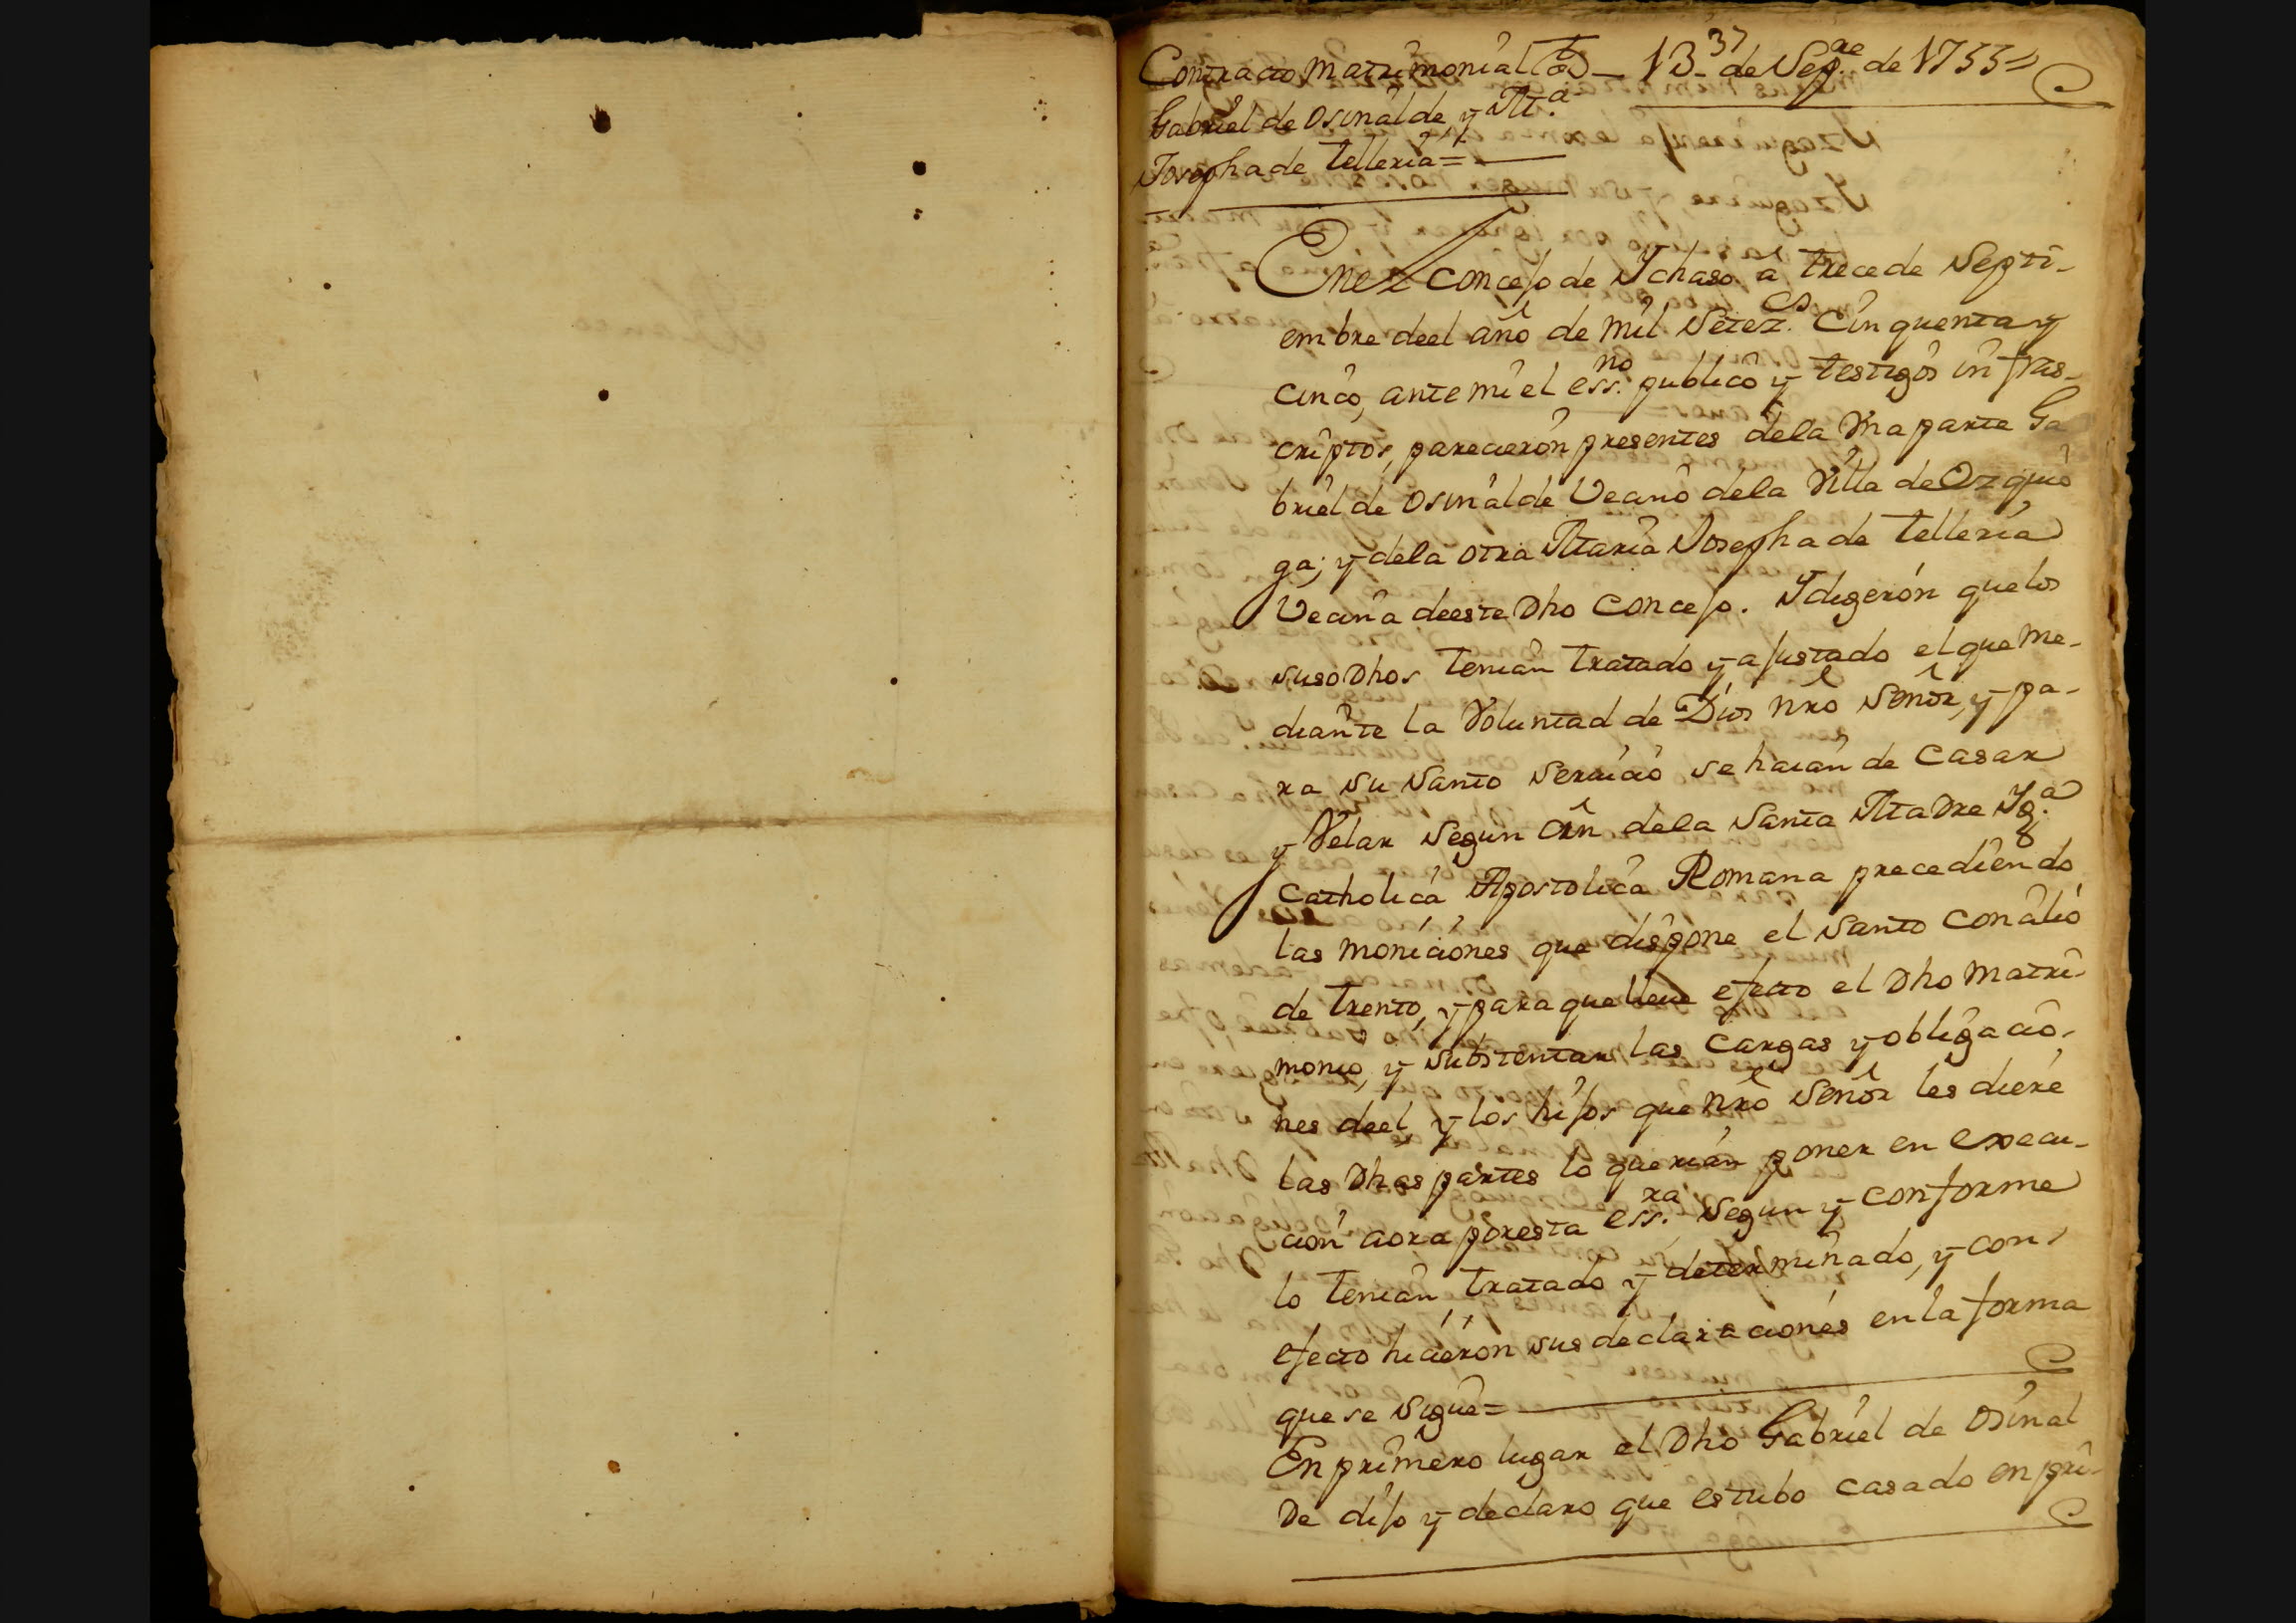 Contracto Matrimonial 13 de Sepre de 1755=
37
Gabriel de Osinalde, y Ma
Josepha de Telleria=
En el Concejo de Ychaso â trece de Septi-
embre deel año de mil Setezs Cinquenta y
cinco, ante mi el essno publico y testigos infras-
criptos, parecieron presentes dela Vna parte Ga
briel de Osinalde Vecino dela Villa de Ozquio
ga; y dela otra Maria Josepha de Telleria
Vecina deeste Dho Concejo. Y digeron que los
suso Dhos tenian tratado y ajustado el que me-
diante la Voluntad de Dios nro Señor, y pa-
ra su Santo Servicio se hacian de Casar
y Velar Segun Orn dela Santa Madre Yga
Catholica Apostolica Romana precediendo
las moniciones que dispone el Santo Concilio
de Trento, y para que lleve efecto el Dho Matri-
monio, y substentar las Cargas y obligacio-
nes deel, y los hijos que nro Señor les diere
las Dhas partes lo querian poner en execu-
cion aora por esta essra Segun y conforme
lo tenian tratado y determinado, y con
efecto hicieron sus declaraciones en la forma
que se Sigue=
En primero lugar el Dho Gabriel de Osinal
de dijo y declaro que estubo casado en pri-